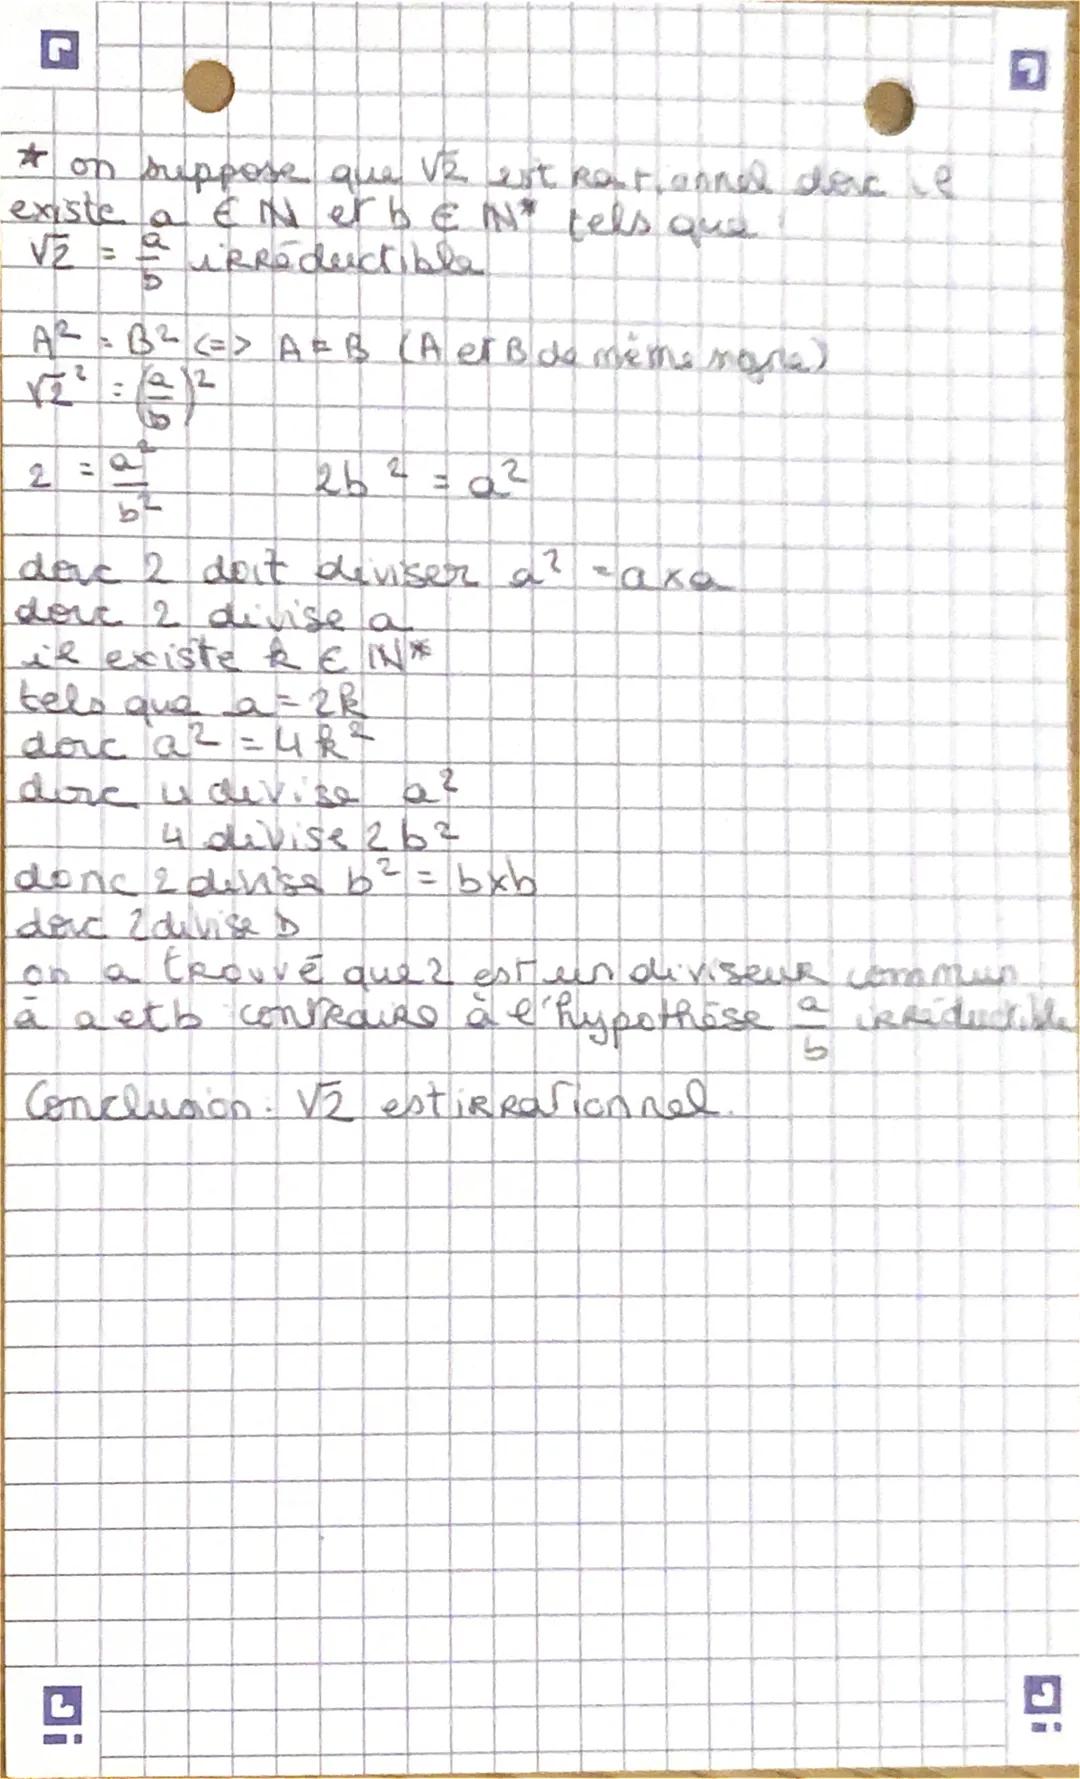 * on suppose que √2 est rationnel donc il
existe a ∈ ℕ et b ∈ ℕ* tels que
√2 = a/b irréductible
A² = B² <=> A = B (A et B de même signe)
√2² = (a/b)²
2 = a²/b² 2b² = a²
donc 2 doit diviser a² = a×a
donc 2 divise a
il existe k ∈ ℕ*
tels que a = 2k
donc a² = 4k²
donc 4 divise a²
4 divise 2b²
donc 2 divise b² = b×b
donc 2 divise b
on a trouvé que 2 est un diviseur commun
à a et b contraire à l'hypothèse a/b irréductible
Conclusion : √2 est irrationnel.